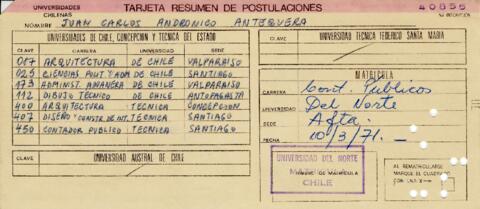 UNIVERSIDADES CHILENAS
TARJETA RESUMEN DE POSTULACIONES
40856
NOMBRE JUAN CARLOS ANDRONICO ANTEQUERA
UNIVERSIDADES DE CHILE, CONCEPCION Y TECNICA DEL ESTADO
CLAVE CARRERA UNIVERSIDAD SEDE
017 ARQUITECTURA DE CHILE VALPARAISO
025 CIENCIAS POLIT Y ADM DE CHILE SANTIAGO
173 ADMINIST. ADUANERA DE CHILE VALPARAISO
112 DIBUJO TECNICO DE CHILE ANTOFAGASTA
400 ARQUITECTURA TECNICA CONCEPCION
407 DISEÑO CONSTR. DE INT. TECNICA SANTIAGO
450 CONTADOR PUBLICO TECNICA SANTIAGO
UNIVERSIDAD AUSTRAL DE CHILE
CLAVE
UNIVERSIDAD TECNICA FEDERICO SANTA MARIA
CLAVE
MATRICULA
CARRERA Cont. Públicos
UNIVERSIDAD Del Norte
SEDE Afta.
FECHA 10/3/71.-
UNIVERSIDAD DEL NORTE
DE MATRICULA
CHILE
AL REMATRICULARSE
MARQUE EL CUADRADO
CON UNA X